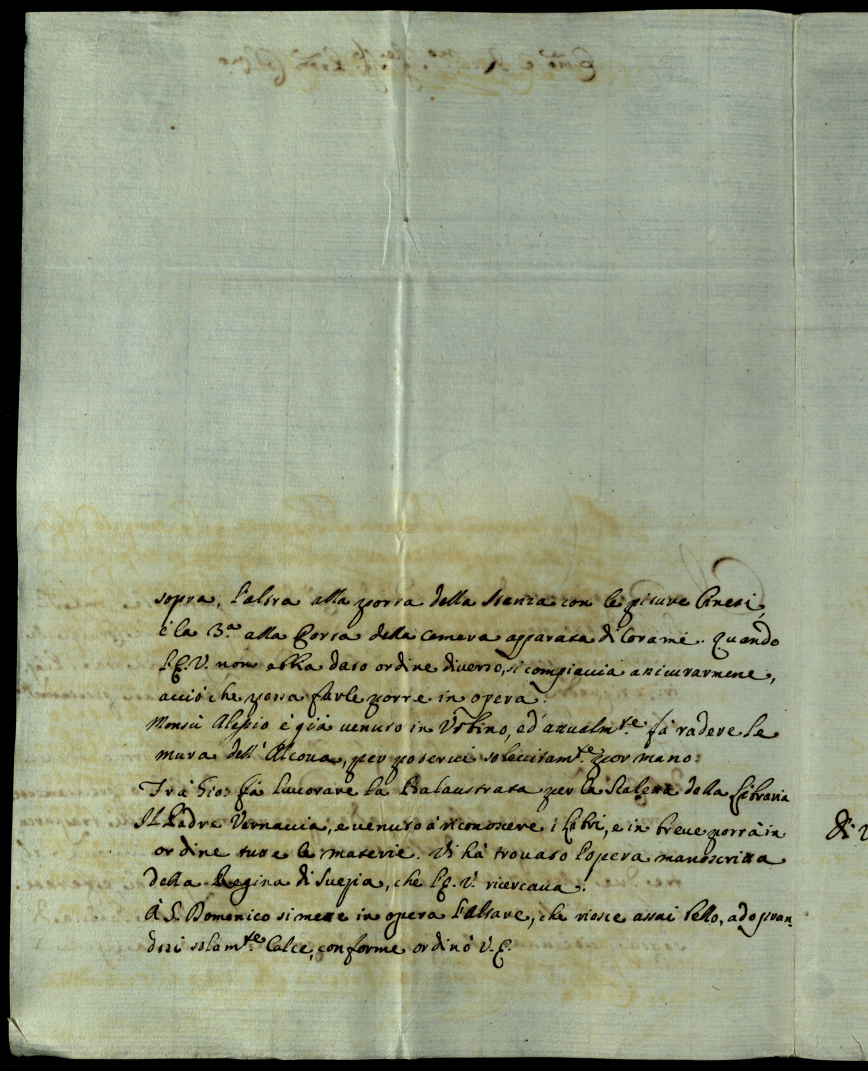 sopra, l'altra alla porta della stanza con le pitture Cinesi,
è la 3.ª alla Porta della camera apparata di Corame. Quando
l'E.V. non abbia dato ordine diverso, si compiaccia assicurarmene,
acciò che possa farle porre in opera.
Monsù Alessio è già venuto in Urbino, ed attualm.te fà radere le
mura dell'Alcova, per poterci sollecitam.te por mano:
Frà Gio: fà lavorare la Balaustrata per la Scaletta della Libraria
Il Padre Vernaccia, e venuto à riconoscere i Libri, e in breve porrà in
ordine tutte le materie. Vi hà trovato l'opera manoscritta
della Regina di Svezia, che l'E.V. ricercava.
À S. Domenico si mette in opera l'Altare, che riesce assai bello, adopran=
dosi solam.te Calce, conforme ordinò V.E.
di